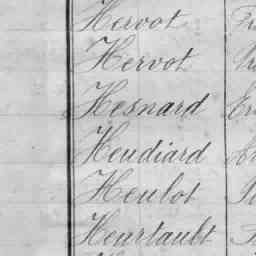 Hervot
Hervot
Hesnard
Heudiard
Heulot
Heurtault